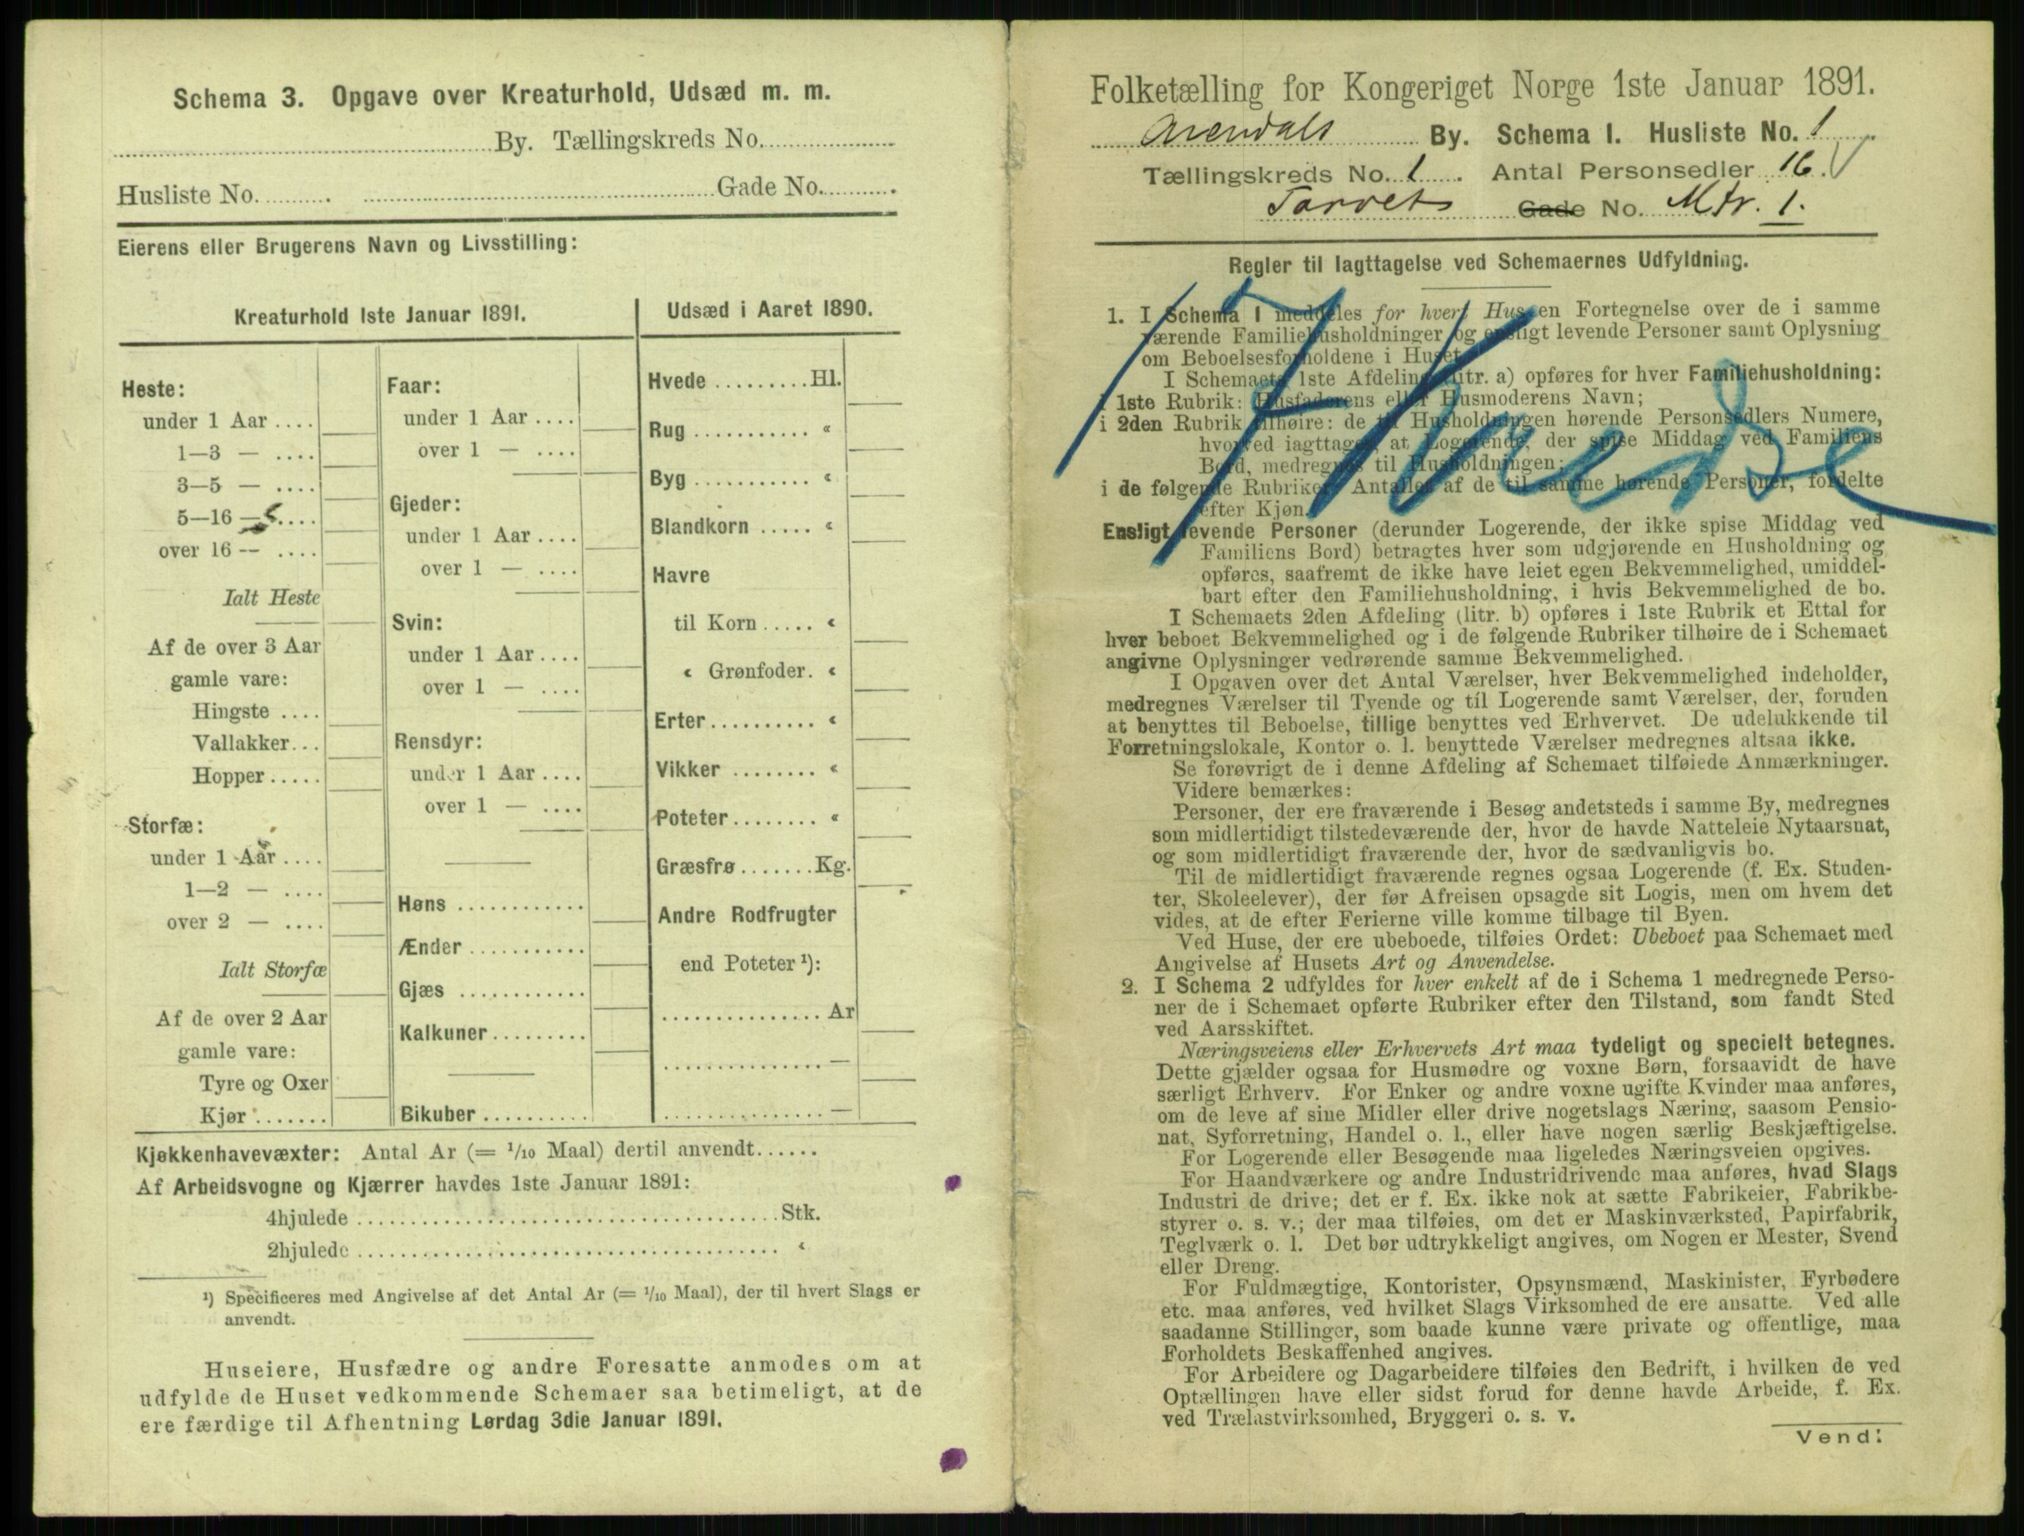 Schema 3. Opgave over Kreaturhold, Udsæd m. m.
By. Tællingskreds No.
Husliste No. Gade No.
Eierens eller Brugerens Navn og Livsstilling:
Kreaturhold 1ste Januar 1891.
Heste:
under 1 Aar ....
1—3 — ....
3—5 — ....
5—16 — ....
over 16 — ....
Ialt Heste
Af de over 3 Aar
gamle vare:
Hingste ....
Vallakker...
Hopper .....
Storfæ:
under 1 Aar ....
1—2 — ....
over 2 — ....
Ialt Storfæ
Af de over 2 Aar
gamle vare:
Tyre og Oxer
Kjør .......
Faar:
under 1 Aar ....
over 1 — ....
Gjeder:
under 1 Aar ....
over 1 — ....
Svin:
under 1 Aar ....
over 1 — ....
Rensdyr:
under 1 Aar ....
over 1 — ....
Høns ............
Ænder ...........
Gjæs ............
Kalkuner.........
Bikuber ..........
Udsæd i Aaret 1890.
Hvede .........Hl.
Rug ........... «
Byg ........... «
Blandkorn ..... «
Havre
til Korn ..... «
« Grønfoder. «
Erter.......... «
Vikker ........ «
Poteter........ «
Græsfrø .......Kg.
Andre Rodfrugter
end Poteter ¹):
............... Ar
............... —
............... —
Kjøkkenhavevæxter: Antal Ar (= ¹/₁₀ Maal) dertil anvendt......
Af Arbeidsvogne og Kjærrer havdes 1ste Januar 1891:
4hjulede .......................................Stk.
2hjulede ....................................... «
¹) Specificeres med Angivelse af det Antal Ar (= ¹/₁₀ Maal), der til hvert Slags er
anvendt.
Huseiere, Husfædre og andre Foresatte anmodes om at
udfylde de Huset vedkommende Schemaer saa betimeligt, at de
ere færdige til Afhentning Lørdag 3die Januar 1891.
Folketælling for Kongeriget Norge 1ste Januar 1891.
Arendals By. Schema I. Husliste No. 1
Tællingskreds No. 1. Antal Personsedler 16. V
Torvet Gade No. Mtr. 1.
Regler til Iagttagelse ved Schemaernes Udfyldning.
1. I Schema I meddeles for hvert Hus en Fortegnelse over de i samme
værende Familiehusholdninger og ensligt levende Personer samt Oplysning
om Beboelsesforholdene i Huset.
I Schemaets 1ste Afdeling (litr. a) opføres for hver Familiehusholdning:
i 1ste Rubrik: Husfaderens eller Husmoderens Navn;
i 2den Rubrik tilhøire: de til Husholdningen hørende Personsedlers Numere,
hvorved iagttages, at Logerende, der spise Middag ved Familiens
Bord, medregnes til Husholdningen;
i de følgende Rubriker: Antallet af de til samme hørende Personer, fordelte
efter Kjøn.
Ensligt levende Personer (derunder Logerende, der ikke spise Middag ved
Familiens Bord) betragtes hver som udgjørende en Husholdning og
opføres, saafremt de ikke have leiet egen Bekvemmelighed, umiddel-
bart efter den Familiehusholdning, i hvis Bekvemmelighed de bo.
I Schemaets 2den Afdeling (litr. b) opføres i 1ste Rubrik et Ettal for
hver beboet Bekvemmelighed og i de følgende Rubriker tilhøire de i Schemaet
angivne Oplysninger vedrørende samme Bekvemmelighed.
I Opgaven over det Antal Værelser, hver Bekvemmelighed indeholder,
medregnes Værelser til Tyende og til Logerende samt Værelser, der, foruden
at benyttes til Beboelse, tillige benyttes ved Erhvervet. De udelukkende til
Forretningslokale, Kontor o. l. benyttede Værelser medregnes altsaa ikke.
Se forøvrigt de i denne Afdeling af Schemaet tilføiede Anmærkninger.
Videre bemærkes:
Personer, der ere fraværende i Besøg andetsteds i samme By, medregnes
som midlertidigt tilstedeværende der, hvor de havde Natteleie Nytaarsnat,
og som midlertidigt fraværende der, hvor de sædvanligvis bo.
Til de midlertidigt fraværende regnes ogsaa Logerende (f. Ex. Studen-
ter, Skoleelever), der før Afreisen opsagde sit Logis, men om hvem det
vides, at de efter Ferierne ville komme tilbage til Byen.
Ved Huse, der ere ubeboede, tilføies Ordet: Ubeboet paa Schemaet med
Angivelse af Husets Art og Anvendelse.
2. I Schema 2 udfyldes for hver enkelt af de i Schema 1 medregnede Perso-
ner de i Schemaet opførte Rubriker efter den Tilstand, som fandt Sted
ved Aarsskiftet.
Næringsveiens eller Erhvervets Art maa tydeligt og specielt betegnes.
Dette gjælder ogsaa for Husmødre og voxne Børn, forsaavidt de have
særligt Erhverv. For Enker og andre voxne ugifte Kvinder maa anføres,
om de leve af sine Midler eller drive nogetslags Næring, saasom Pensio-
nat, Syforretning, Handel o. l., eller have nogen særlig Beskjæftigelse.
For Logerende eller Besøgende maa ligeledes Næringsveien opgives.
For Haandværkere og andre Industridrivende maa anføres, hvad Slags
Industri de drive; det er f. Ex. ikke nok at sætte Fabrikeier, Fabrikbe-
styrer o. s. v.; der maa tilføies, om det er Maskinværksted, Papirfabrik,
Teglværk o. l. Det bør udtrykkeligt angives, om Nogen er Mester, Svend
eller Dreng.
For Fuldmægtige, Kontorister, Opsynsmænd, Maskinister, Fyrbødere
etc. maa anføres, ved hvilket Slags Virksomhed de ere ansatte. Ved alle
saadanne Stillinger, som baade kunne være private og offentlige, maa
Forholdets Beskaffenhed angives.
For Arbeidere og Dagarbeidere tilføies den Bedrift, i hvilken de ved
Optællingen have eller sidst forud for denne havde Arbeide, f. Ex.
ved Trælastvirksomhed, Bryggeri o. s. v.
Vend!